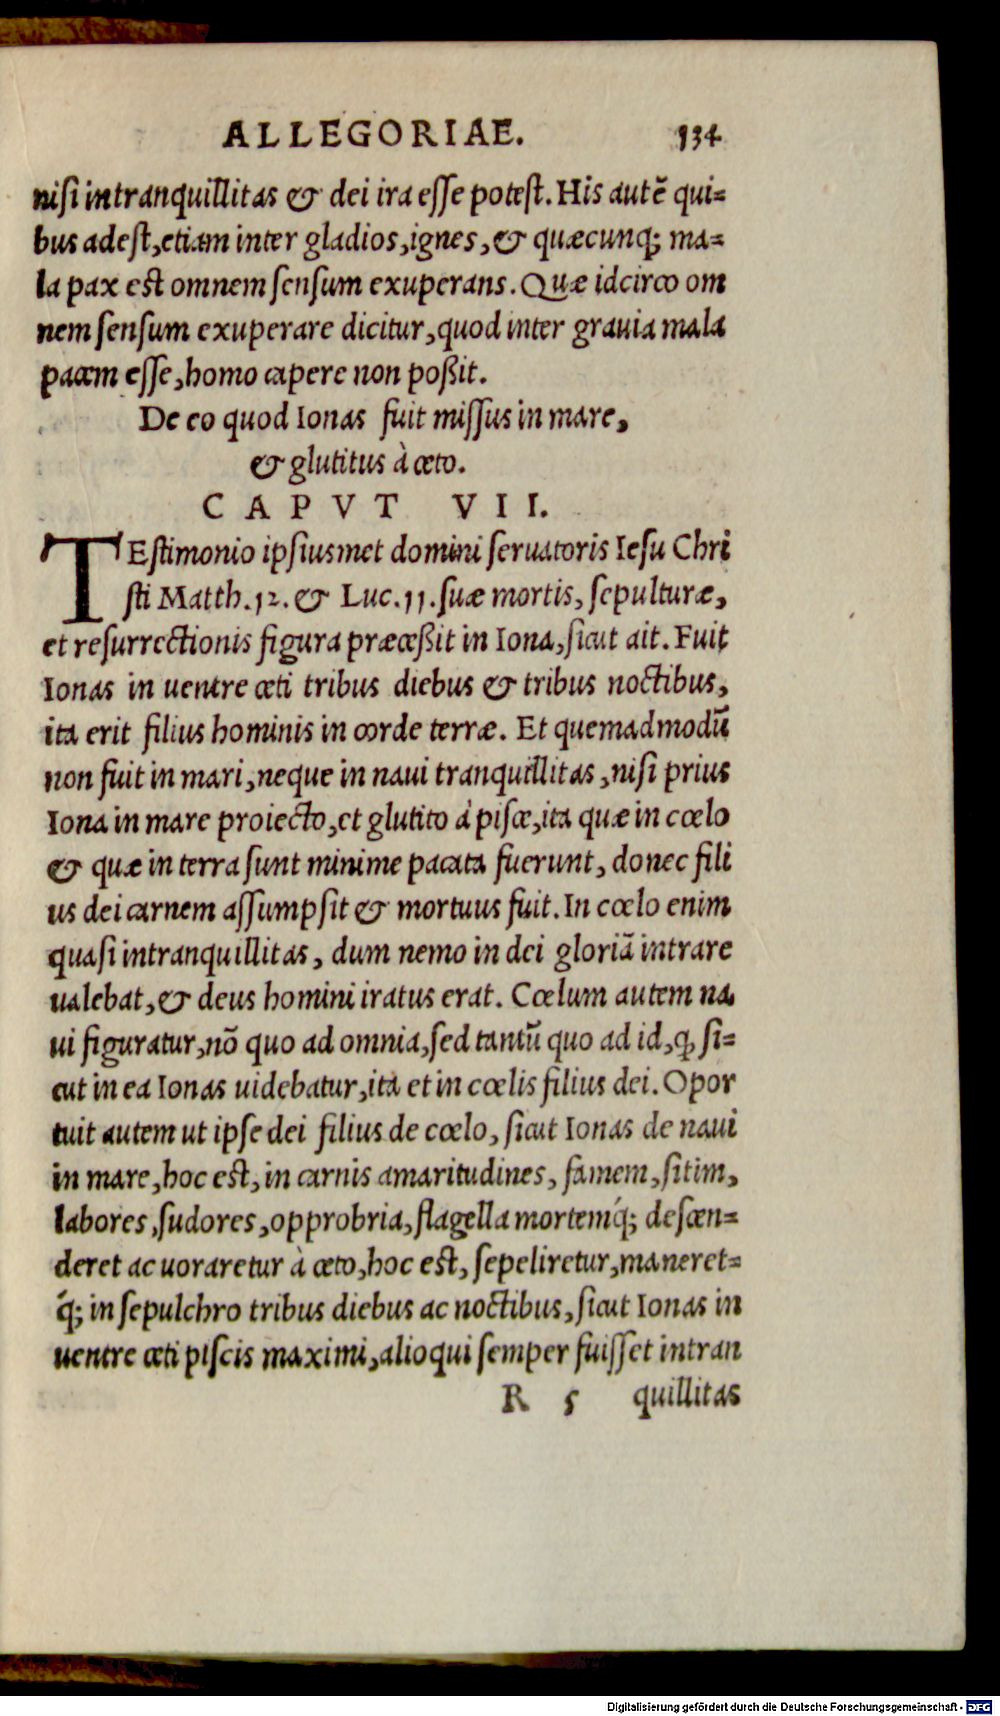 ALLEGORIAE. 134
nisi intranquillitas & dei ira esse potest. His autē qui-
bus adest, etiam inter gladios, ignes, & quæcunq; ma-
la pax est omnem sensum exuperans. Quæ idcirco om
nem sensum exuperare dicitur, quod inter grauia mala
pacem esse, homo capere non poßit.
De eo quod Ionas fuit missus in mare,
& glutitus à ceto.
CAPVT VII.
TEstimonio ipsiusmet domini seruatoris Iesu Chri
sti Matth. 12. & Luc. 11. suæ mortis, sepulturæ,
et resurrectionis figura præceßit in Iona, sicut ait. Fuit
Ionas in uentre ceti tribus diebus & tribus noctibus,
ita erit filius hominis in corde terræ. Et quemadmodū
non fuit in mari, neque in naui tranquillitas, nisi prius
Iona in mare proiecto, et glutito à pisce, ita quæ in cœlo
& quæ in terra sunt minime pacata fuerunt, donec fili
us dei carnem assumpsit & mortuus fuit. In cœlo enim
quasi intranquillitas, dum nemo in dei gloriā intrare
ualebat, & deus homini iratus erat. Cœlum autem na
ui figuratur, nō quo ad omnia, sed tantū quo ad id, ꝙ si-
cut in ea Ionas uidebatur, ita et in cœlis filius dei. Opor
tuit autem ut ipse dei filius de cœlo, sicut Ionas de naui
in mare, hoc est, in carnis amaritudines, famem, sitim,
labores, sudores, opprobria, flagella mortemq́; descen-
deret ac uoraretur à ceto, hoc est, sepeliretur, maneret-
q́; in sepulchro tribus diebus ac noctibus, sicut Ionas in
uentre ceti piscis maximi, alioqui semper fuisset intran
R 5 quillitas
Digitalisierung gefördert durch die Deutsche Forschungsgemeinschaft - DFG